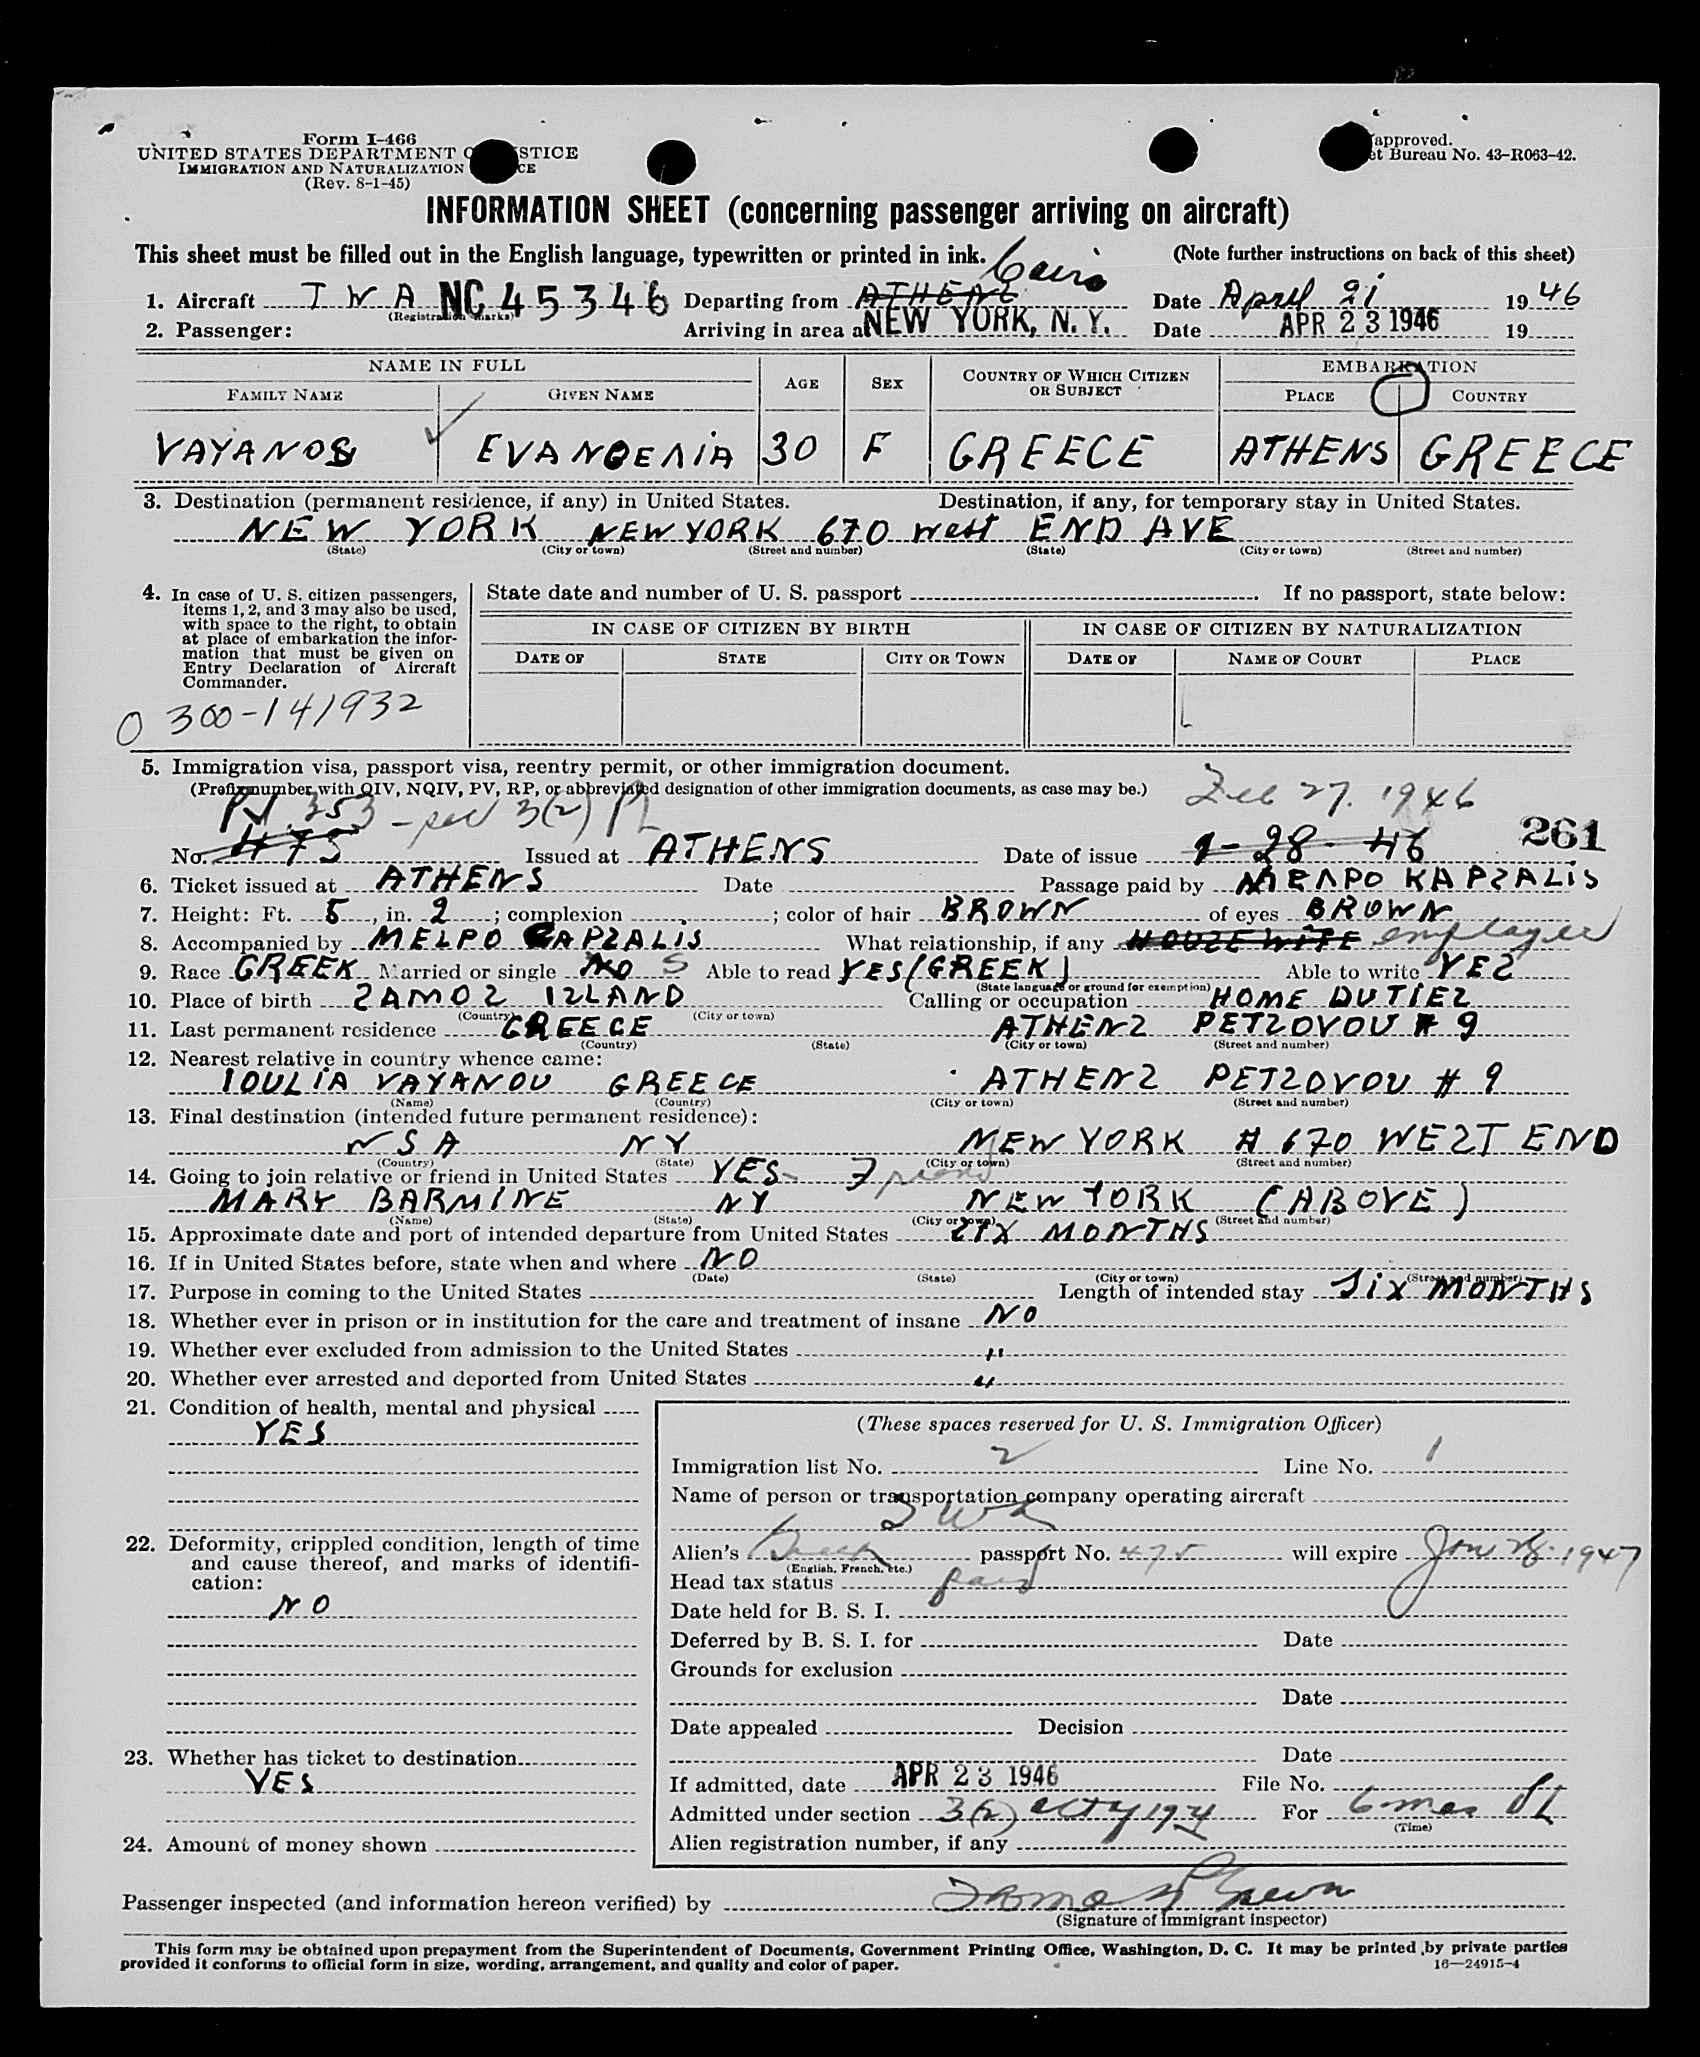 Form I-466
UNITED STATES DEPARTMENT O STICE
IMMIGRATION AND NATURALIZATION CE
(Rev. 8-1-45)
approved.
et Bureau No. 43-R063-42.
INFORMATION SHEET (concerning passenger arriving on aircraft)
This sheet must be filled out in the English language, typewritten or printed in ink. (Note further instructions on back of this sheet)
Cairo
1. Aircraft TWA NC 45346 Departing from ATHENS Date April 21 1946
(Registration marks)
2. Passenger: Arriving in area at NEW YORK, N. Y. Date APR 23 1946 19
NAME IN FULL AGE SEX COUNTRY OF WHICH CITIZEN OR SUBJECT EMBARKATION
FAMILY NAME GIVEN NAME PLACE COUNTRY
VAYANOS EVANGEΛIA 30 F GREECE ATHENS GREECE
3. Destination (permanent residence, if any) in United States. Destination, if any, for temporary stay in United States.
NEW YORK NEW YORK 670 West END AVE
(State) (City or town) (Street and number) (State) (City or town) (Street and number)
4. In case of U. S. citizen passengers, items 1, 2, and 3 may also be used, with space to the right, to obtain at place of embarkation the information that must be given on Entry Declaration of Aircraft Commander.
State date and number of U. S. passport If no passport, state below:
IN CASE OF CITIZEN BY BIRTH IN CASE OF CITIZEN BY NATURALIZATION
DATE OF STATE CITY OR TOWN DATE OF NAME OF COURT PLACE
0 300-141932
5. Immigration visa, passport visa, reentry permit, or other immigration document.
(Prefix number with QIV, NQIV, PV, RP, or abbreviated designation of other immigration documents, as case may be.)
PV 353 - sec 3(2) PL Feb 27, 1946
261
No. 475 Issued at ATHENS Date of issue 1-28-46
6. Ticket issued at ATHENS Date Passage paid by MEΛPO KAPSALIS
7. Height: Ft. 5, in. 2; complexion ; color of hair BROWN of eyes BROWN
8. Accompanied by MELPO CAPSALIS What relationship, if any HOUSE WIFE employer
9. Race GREEK Married or single NO S Able to read YES (GREEK) Able to write YES
(State language or ground for exemption)
10. Place of birth SAMOS ISLAND Calling or occupation HOME DUTIES
(Country) (City or town)
11. Last permanent residence GREECE ATHENS PETSOVOU # 9
(Country) (State) (City or town) (Street and number)
12. Nearest relative in country whence came:
IOULIA VAYANOU GREECE ATHENS PETSOVOU # 9
(Name) (Country) (City or town) (Street and number)
13. Final destination (intended future permanent residence):
USA NY NEW YORK # 670 WEST END
(Country) (State) (City or town) (Street and number)
14. Going to join relative or friend in United States YES Friend
MARY BARMINE NY NEW YORK (ABOVE)
(Name) (State) (City or town) (Street and number)
15. Approximate date and port of intended departure from United States SIX MONTHS
16. If in United States before, state when and where NO
(Date) (State) (City or town) (Street and number)
17. Purpose in coming to the United States Length of intended stay SIX MONTHS
18. Whether ever in prison or in institution for the care and treatment of insane NO
19. Whether ever excluded from admission to the United States "
20. Whether ever arrested and deported from United States "
21. Condition of health, mental and physical
YES
22. Deformity, crippled condition, length of time and cause thereof, and marks of identification:
NO
23. Whether has ticket to destination
YES
24. Amount of money shown
(These spaces reserved for U. S. Immigration Officer)
Immigration list No. 2 Line No. 1
Name of person or transportation company operating aircraft
TWA
Alien's Greek passport No. 475 will expire Jan 28, 1947
(English, French, etc.)
Head tax status paid
Date held for B. S. I.
Deferred by B. S. I. for Date
Grounds for exclusion
Date
Date appealed Decision
Date
If admitted, date APR 23 1946 File No.
Admitted under section 3(2) act of 1924 For 6 mos
(Time)
Alien registration number, if any
Passenger inspected (and information hereon verified) by
(Signature of Immigrant inspector)
This form may be obtained upon prepayment from the Superintendent of Documents, Government Printing Office, Washington, D. C. It may be printed by private parties
provided it conforms to official form in size, wording, arrangement, and quality and color of paper.
16—24915-4